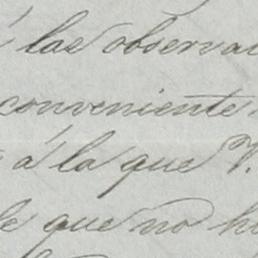 á las observa
conveniente
á la que V.
le que no h